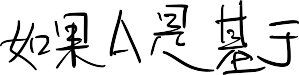 如果A是基于